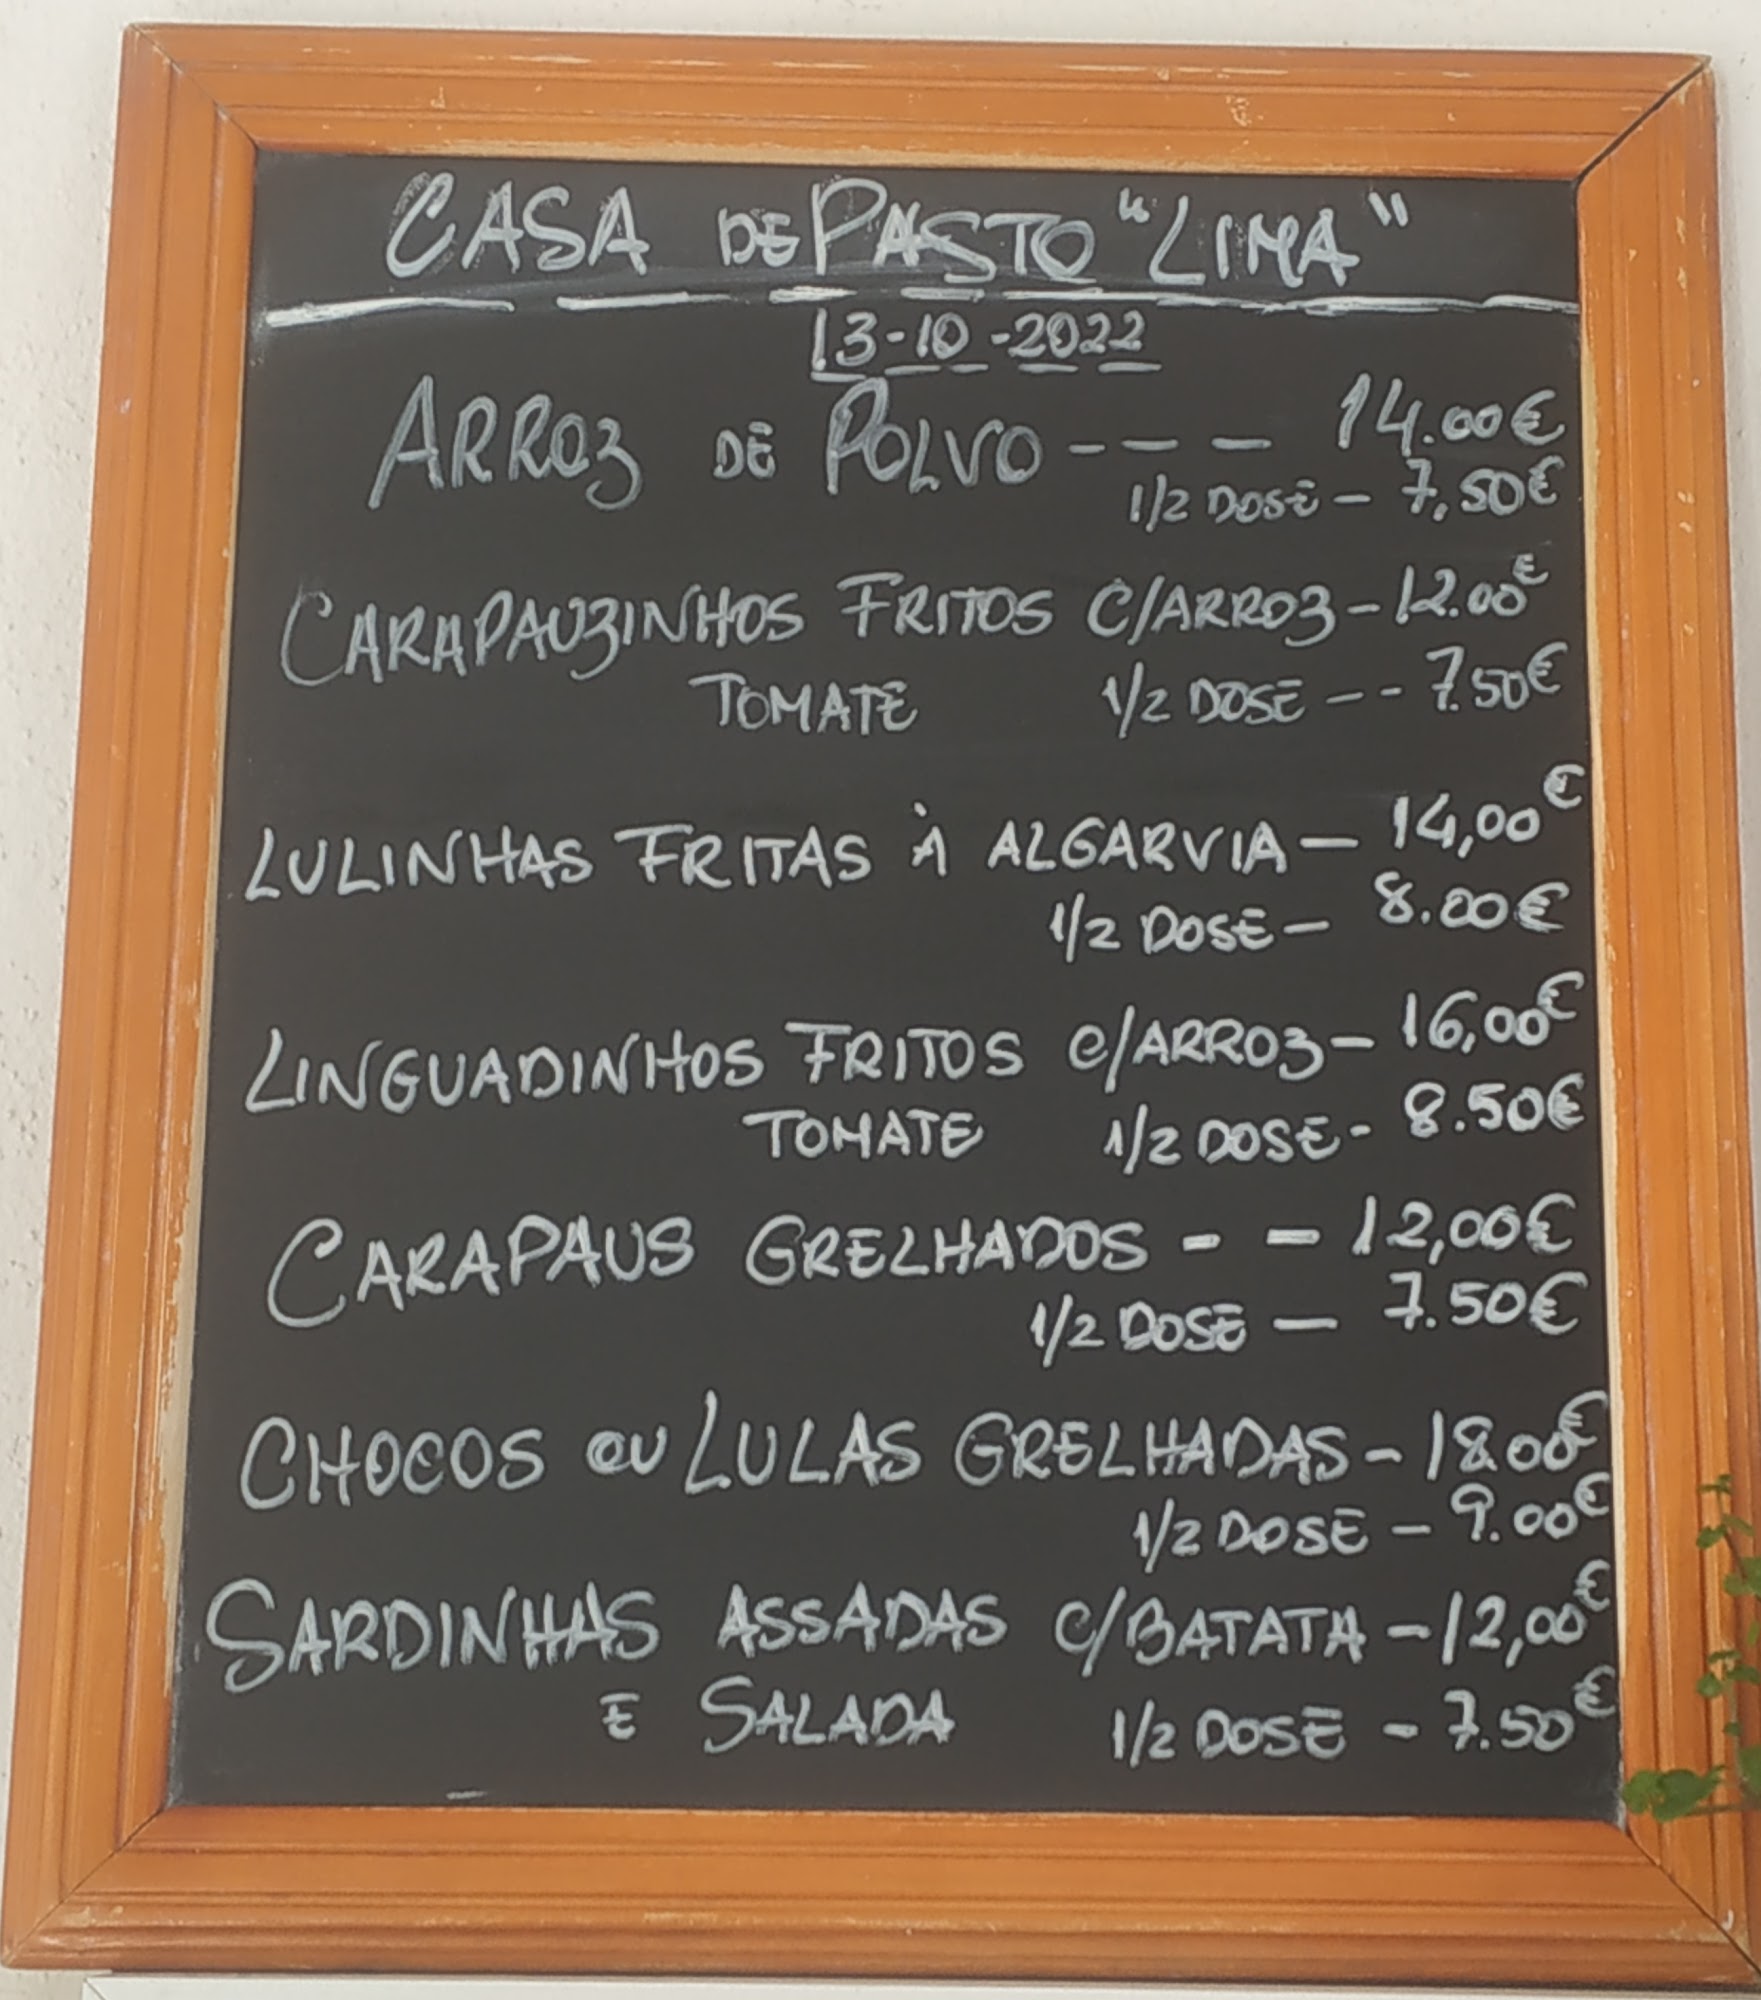 CASA DE PASTO "LIMA"
13-10-2022
ARROZ DE POLVO --- 14.00€
1/2 DOSE - 7,50€
CARAPAUZINHOS FRITOS C/ARROZ - 12.00€
TOMATE 1/2 DOSE -- 7.50€
LULINHAS FRITAS À ALGARVIA - 14,00€
1/2 DOSE - 8.00€
LINGUADINHOS FRITOS C/ARROZ - 16,00€
TOMATE 1/2 DOSE - 8.50€
CARAPAUS GRELHADOS -- 12,00€
1/2 DOSE - 7.50€
CHOCOS OU LULAS GRELHADAS - 18.00€
1/2 DOSE - 9.00€
SARDINHAS ASSADAS C/BATATA - 12,00€
E SALADA 1/2 DOSE - 7.50€